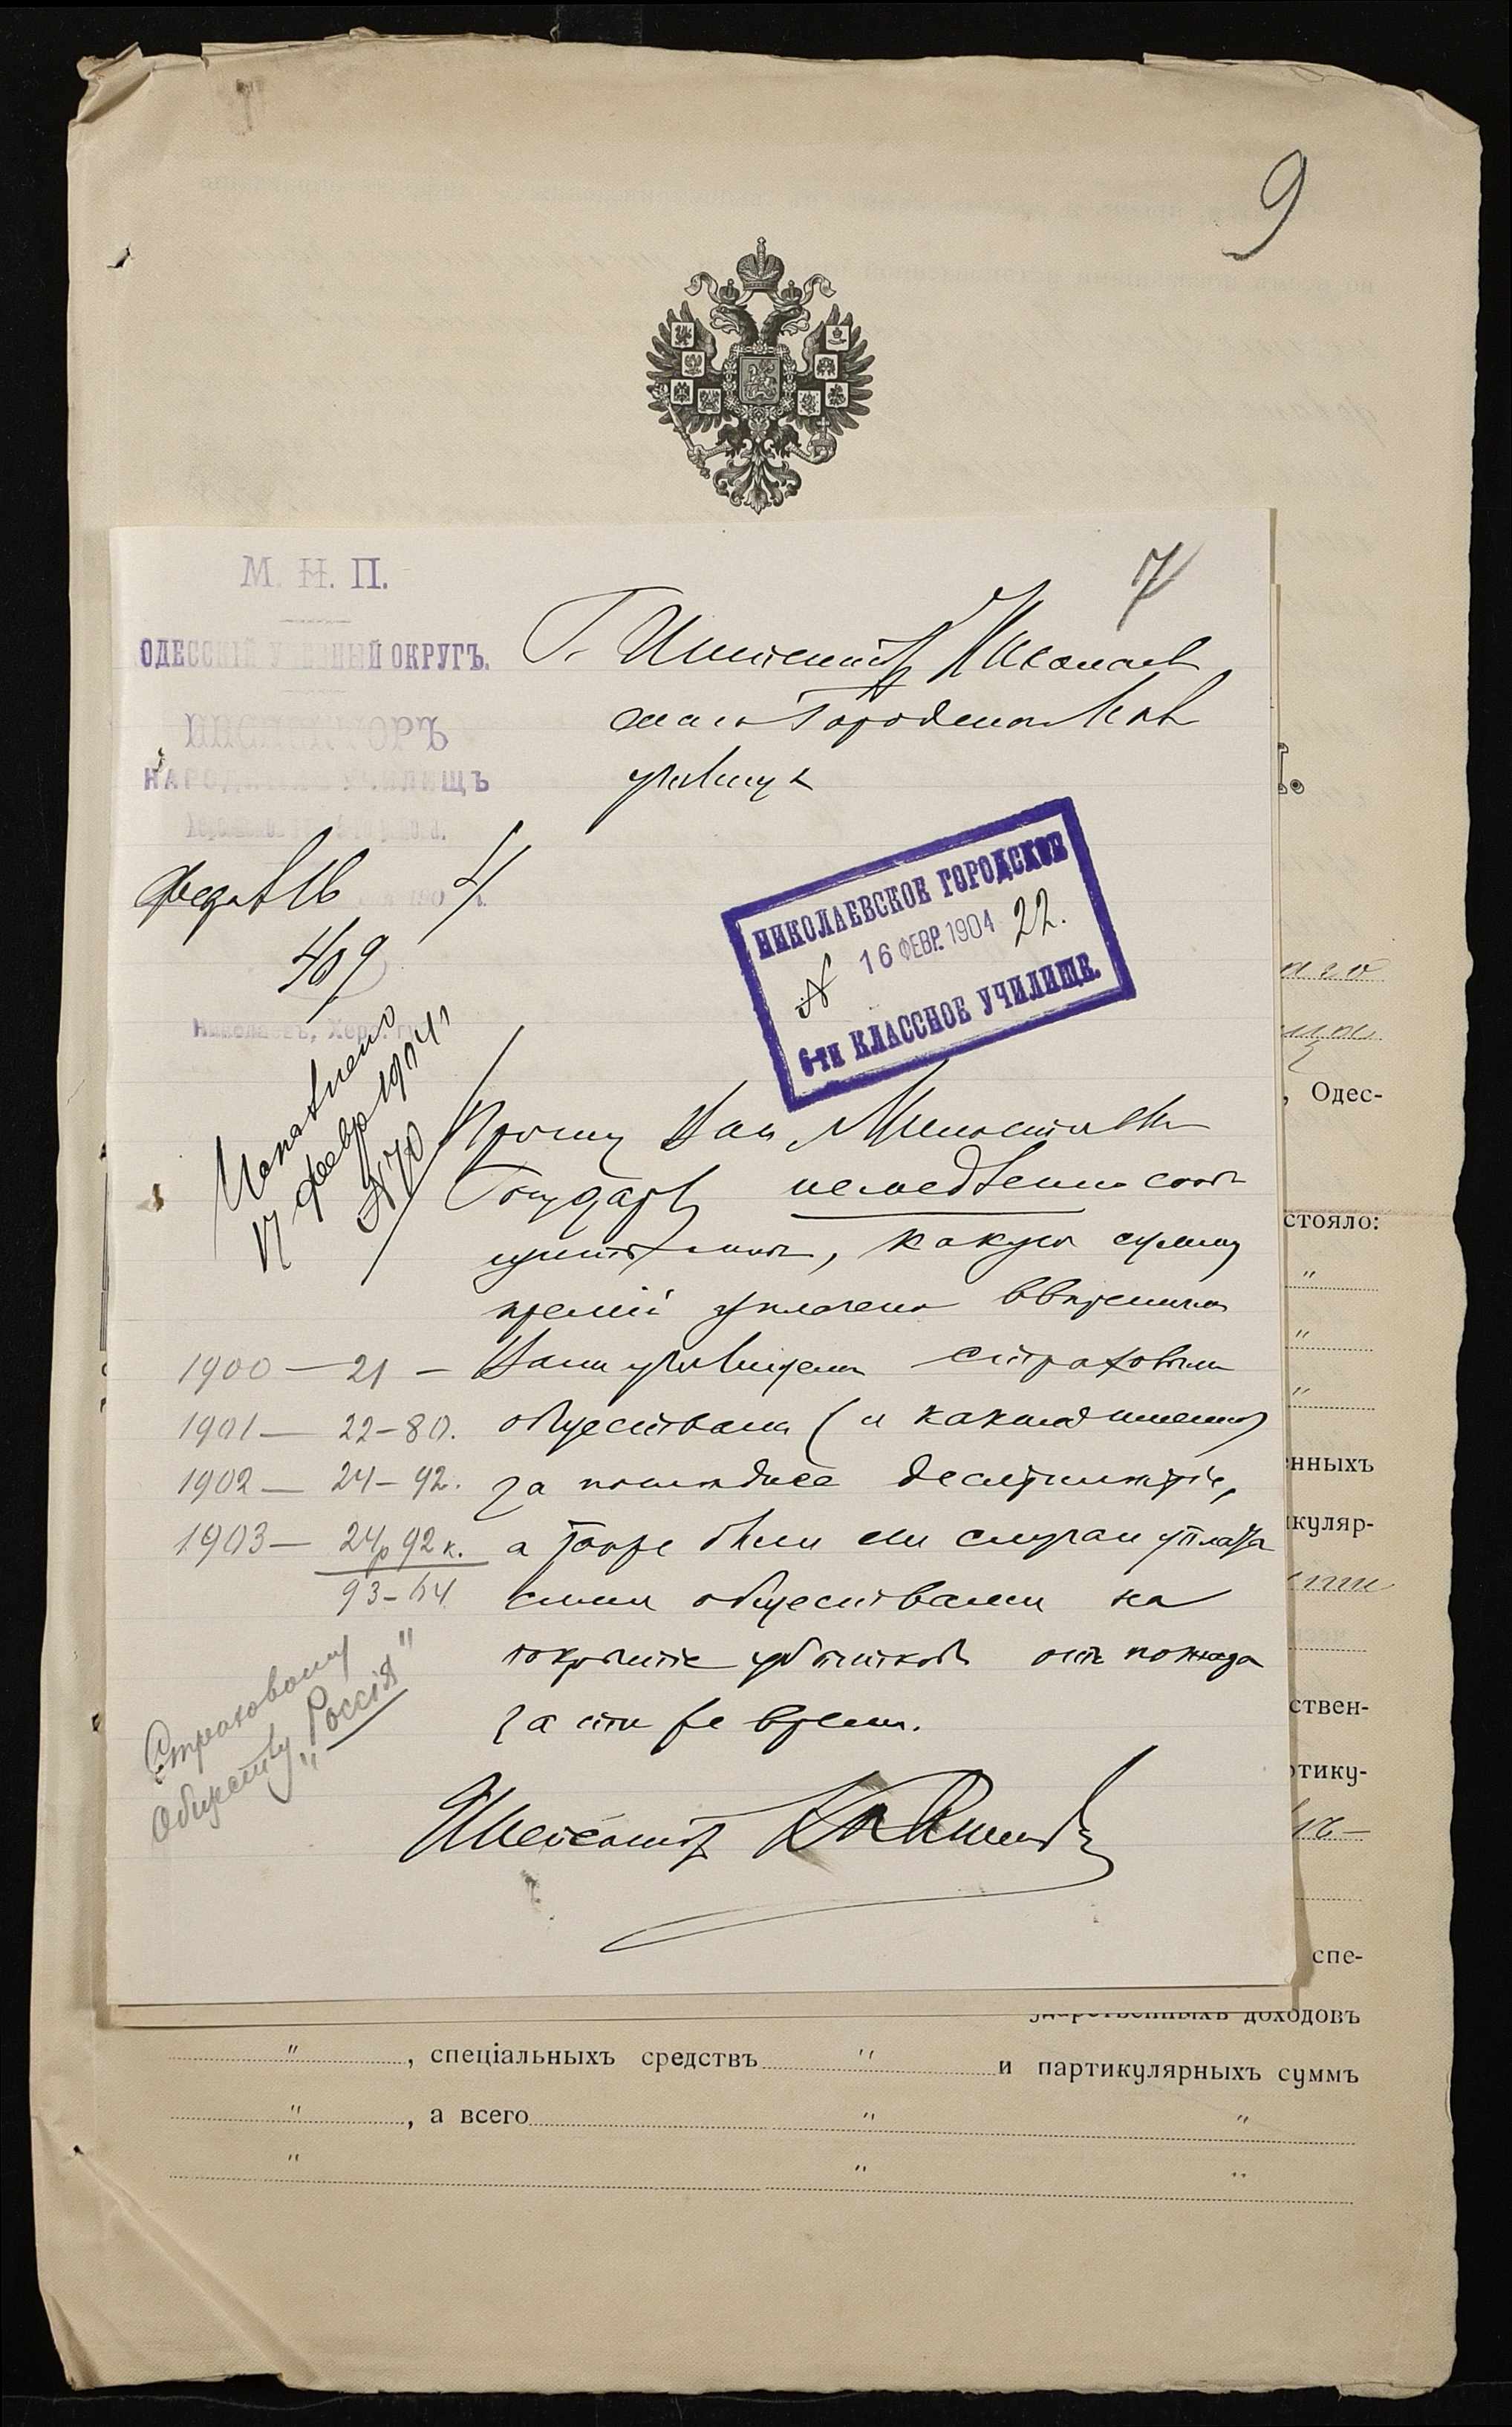 9
М. Н. П.
7
ОДЕССКІЙ УЧЕБНЫЙ ОКРУГЪ.
Г. Инспектору Николаев
скаго Городского
училища
ИНСПЕКТОРЪ
НАРОДНЫХЪ УЧИЛИЩЪ
16
4
409
Николаевъ, Херс. г.
НИКОЛАЕВСКОЕ ГОРОДСКОЕ
№ 16 ФЕВР. 1904 22.
6-ти КЛАССНОЕ УЧИЛИЩЕ.
17 февр 1904 г
№ 70
Прошу Вас, Милостивый
Государь, немедленно сооб
щить мне, какую сумму
премій уплачено ввереннымъ
Вамъ училищемъ страховымъ
обществамъ (и какимъ именно)
за последнее десятилетіе,
а также были ли случаи уплаты
сими обществами на
покрытіе убытковъ отъ пожара
за это же время.
1900 — 21 —
1901 — 22 – 80.
1902 — 24 – 92.
1903 — 24р 92 к.
93 – 64
Страховому
Обществу
„Россія"
Инспекторъ
, Одес-
стояло:
"
"
"
нныхъ
куляр-
ствен-
ртику-
спе-
ударственныхъ доходовъ
" , спеціальныхъ средствъ " и партикулярныхъ суммъ
" , а всего " "
" " "